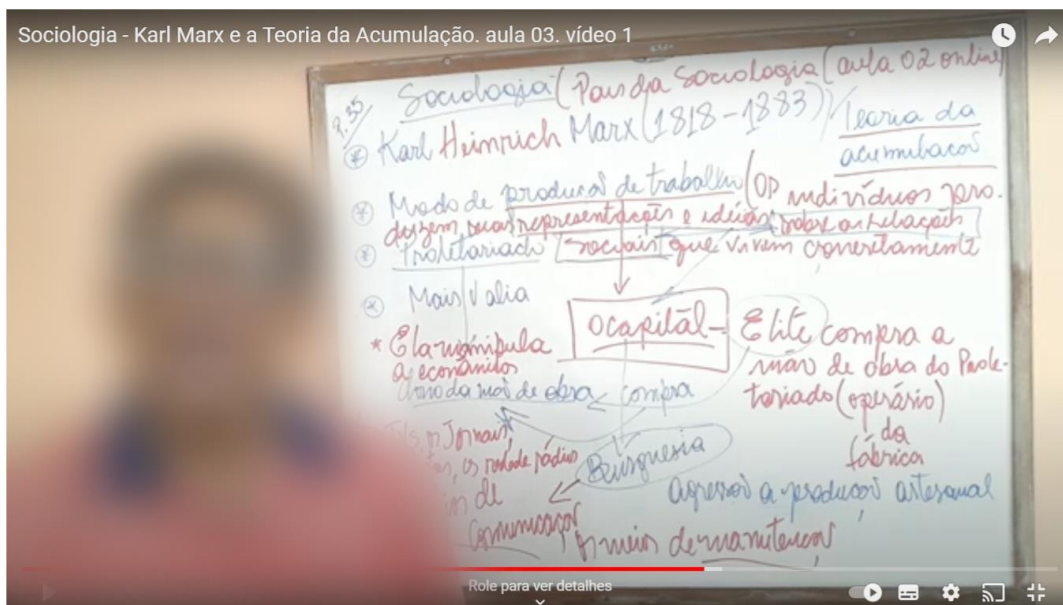 Sociologia - Karl Marx e a Teoria da Acumulação. aula 03. vídeo 1
Sociologia (Pais da Sociologia (aula 02 online)
Karl Heinrich Marx (1818-1883) / Teoria da
acumulacaõ
Modo de producaõ de trabalho (Os indivíduos pro-
duzem suas representações e ideias sobre as relações
Proletariado / sociais que vivem concretamente
Mais Valia
O capital - Elite compra a
mão de obra do Prole-
tariado (operário)
da
fábrica
* Ela manipula
a
dono da mão de obra compra
Jornais,
os rádios
de
Comunicação
Burguesia
a producaõ artesanal
meios de
Role para ver detalhes